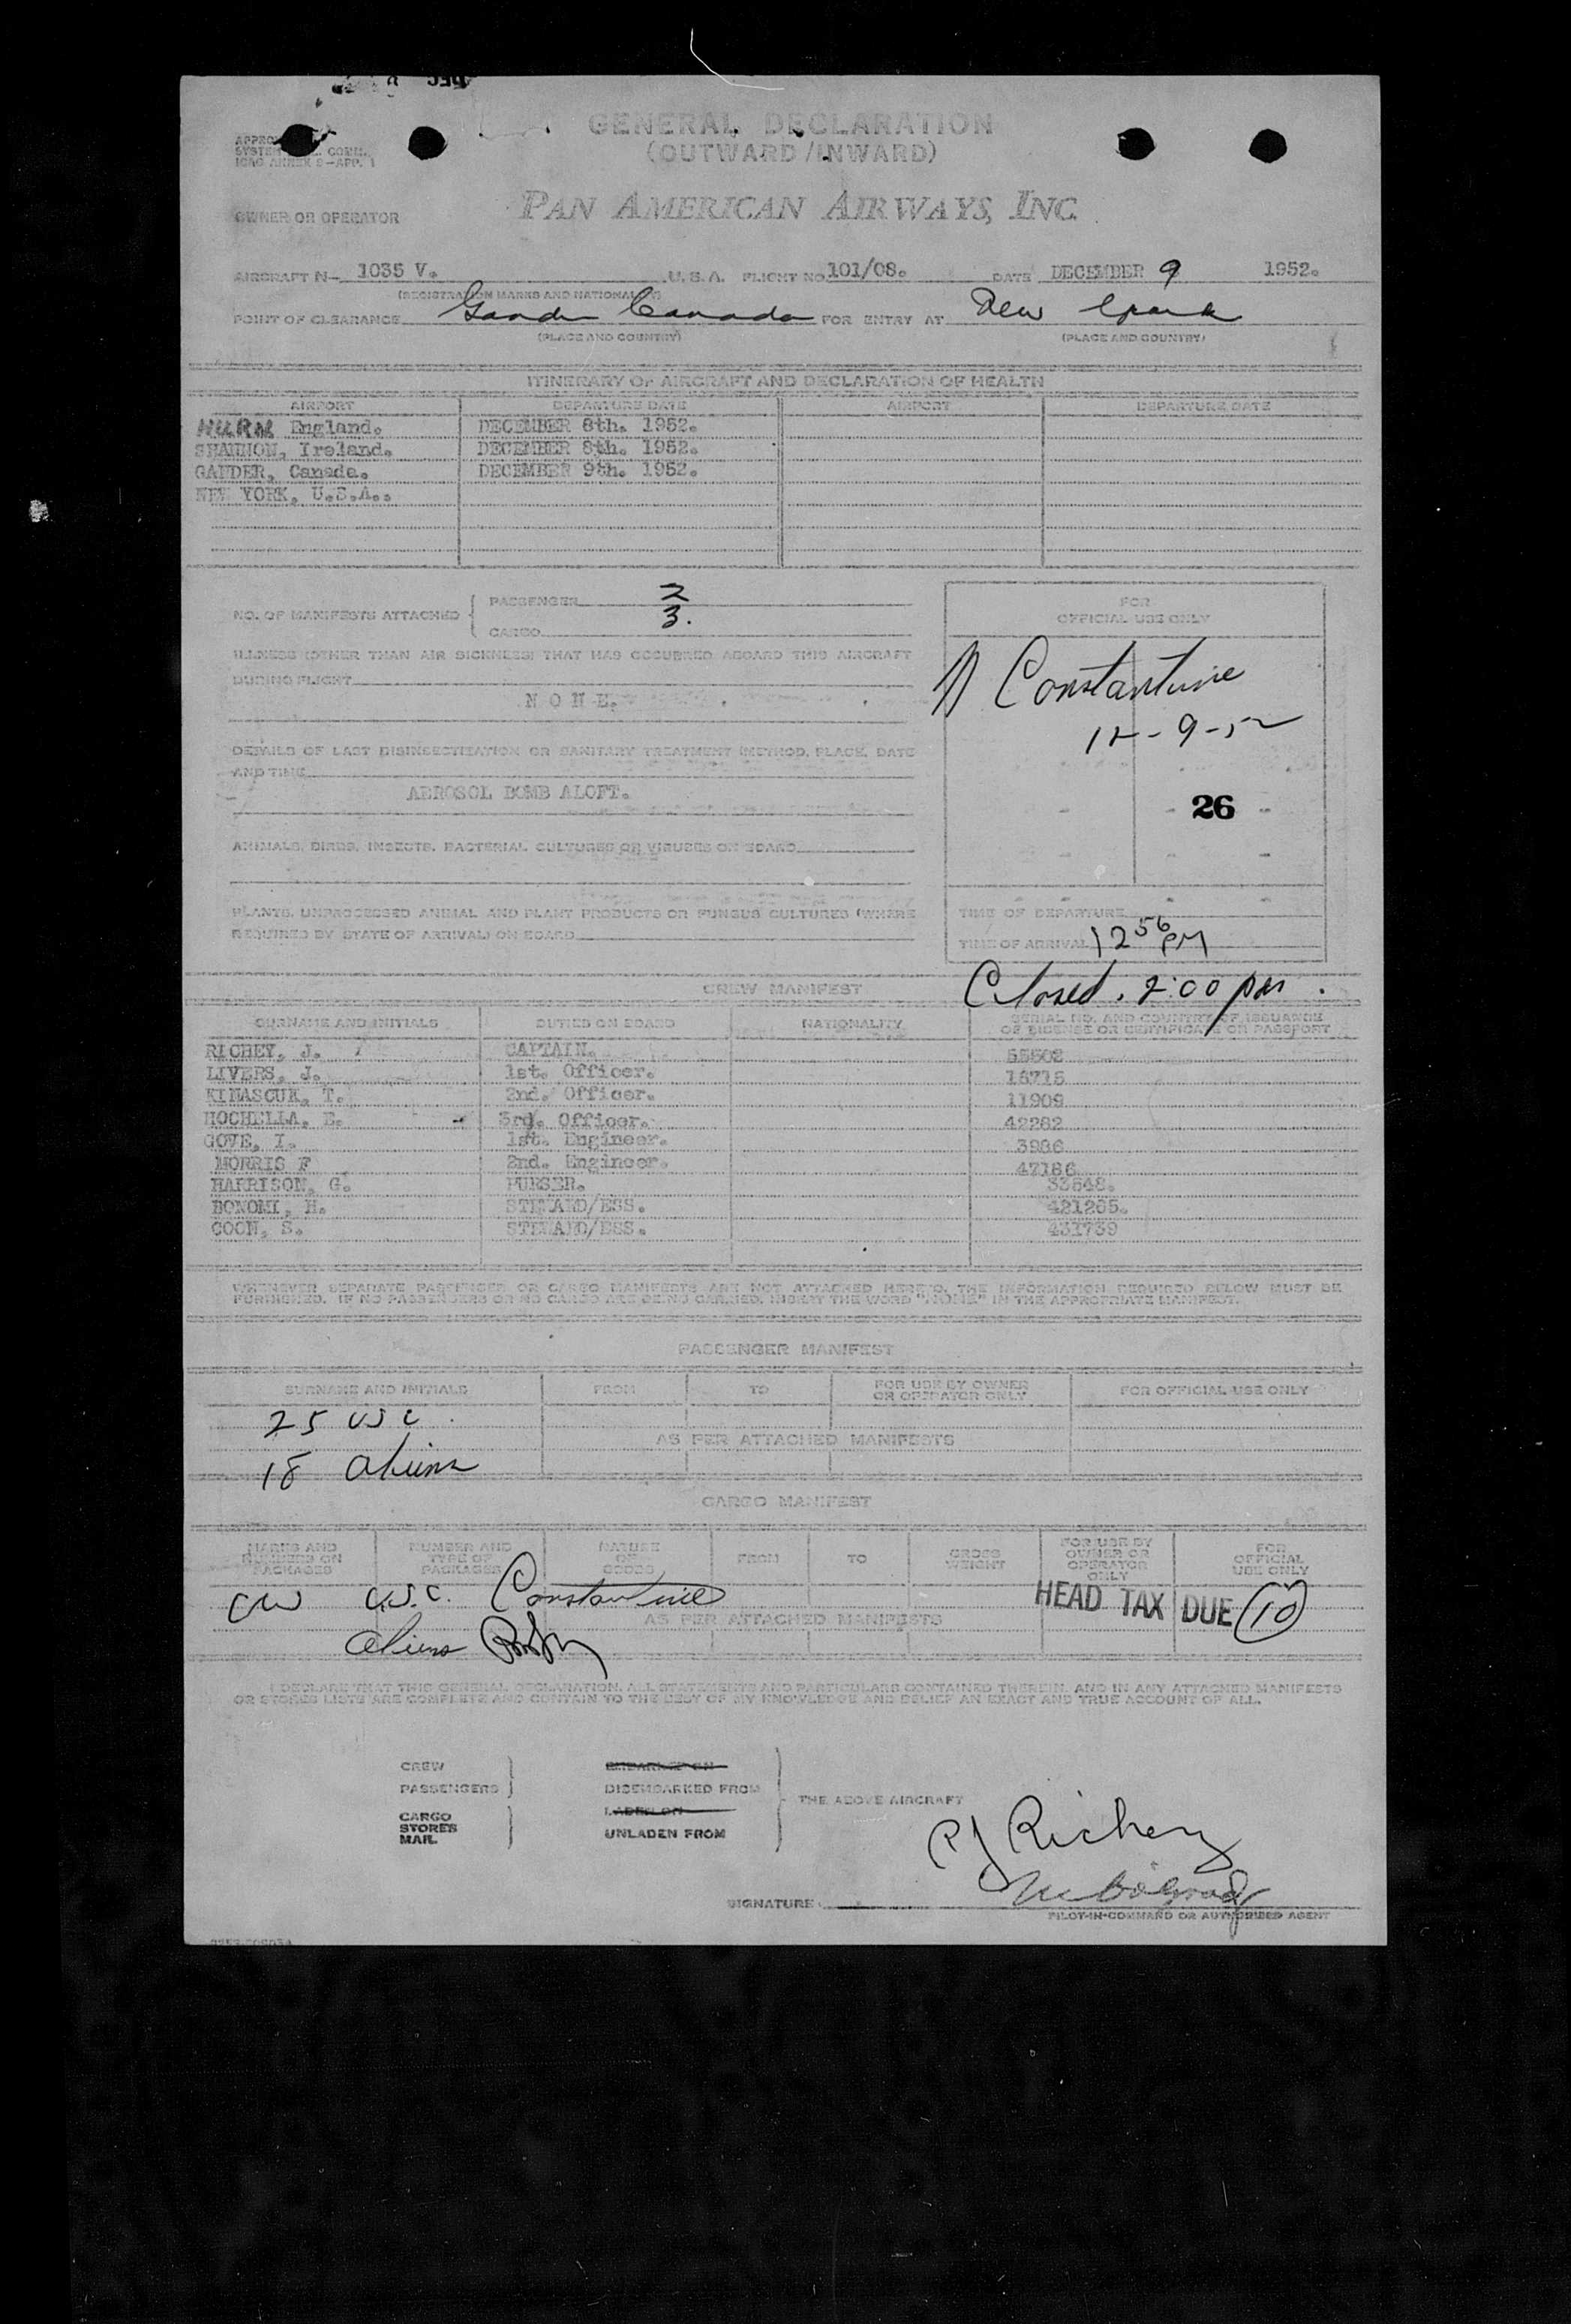 GENERAL DECLARATION
(OUTWARD/INWARD)
ICAO ANNEX 9-APP. 1
OWNER OR OPERATOR PAN AMERICAN AIRWAYS, INC.
AIRCRAFT N- 1035 V. U.S.A. FLIGHT NO. 101/08. DATE DECEMBER 9 1952.
(REGISTRATION MARKS AND NATIONALITY)
POINT OF CLEARANCE Gander Canada FOR ENTRY AT New York
(PLACE AND COUNTRY) (PLACE AND COUNTRY)
ITINERARY OF AIRCRAFT AND DECLARATION OF HEALTH
AIRPORT DEPARTURE DATE AIRPORT DEPARTURE DATE
England. DECEMBER 8th. 1952.
SHANNON, Ireland. DECEMBER 8th. 1952.
GANDER, Canada. DECEMBER 9th. 1952.
NEW YORK, U.S.A..
NO. OF MANIFESTS ATTACHED
PASSENGER 2
CARGO 3.
FOR
OFFICIAL USE ONLY
ILLNESS (OTHER THAN AIR SICKNESS) THAT HAS OCCURRED ABOARD THIS AIRCRAFT
DURING FLIGHT
N O N E.
Constantine
12-9-52
DETAILS OF LAST DISINSECTIZATION OR SANITARY TREATMENT (METHOD, PLACE, DATE
AND TIME
AEROSOL BOMB ALOFT.
26
ANIMALS, BIRDS, INSECTS, BACTERIAL CULTURES OR VIRUSES ON BOARD
PLANTS, UNPROCESSED ANIMAL AND PLANT PRODUCTS OR FUNGUS CULTURES (WHERE
REQUIRED BY STATE OF ARRIVAL) ON BOARD
TIME OF DEPARTURE
TIME OF ARRIVAL 12 56 PM
CREW MANIFEST
Closed. 2:00 pm.
SURNAME AND INITIALS DUTIES ON BOARD NATIONALITY SERIAL NO. AND COUNTRY OF ISSUANCE
OF LICENSE OR CERTIFICATE OR PASSPORT
RICHEY, J. CAPTAIN. 55502
LIVERS, J. 1st. Officer. 16715
KIMASCUK, T. 2nd. Officer. 11909
HOCHELLA, E. 3rd. Officer. 42282
GOVE, I. 1st. Engineer. 3986
MORRIS F 2nd. Engineer. 47186
HARRISON, G. PURSER. 33648.
BONOMI, H. STEWARD/ESS. 421265.
COON, S. STEWARD/ESS. 431739
WHENEVER SEPARATE PASSENGER OR CARGO MANIFESTS ARE NOT ATTACHED HERETO, THE INFORMATION REQUIRED BELOW MUST BE
FURNISHED. IF NO PASSENGERS OR NO CARGO ARE BEING CARRIED, INSERT THE WORD "NONE" IN THE APPROPRIATE MANIFEST.
PASSENGER MANIFEST
SURNAME AND INITIALS FROM TO FOR USE BY OWNER
OR OPERATOR ONLY FOR OFFICIAL USE ONLY
25 USC
AS PER ATTACHED MANIFESTS
18 aliens
CARGO MANIFEST
MARKS AND
NUMBERS ON
PACKAGES NUMBER AND
TYPE OF
PACKAGES NATURE
OF
GOODS FROM TO GROSS
WEIGHT FOR USE BY
OWNER OR
OPERATOR
ONLY FOR
OFFICIAL
USE ONLY
U.S.C. Constantine
HEAD TAX DUE 10
AS PER ATTACHED MANIFESTS
aliens
I DECLARE THAT THIS GENERAL DECLARATION, ALL STATEMENTS AND PARTICULARS CONTAINED THEREIN, AND IN ANY ATTACHED MANIFESTS
OR STORES LISTS ARE COMPLETE AND CONTAIN TO THE BEST OF MY KNOWLEDGE AND BELIEF AN EXACT AND TRUE ACCOUNT OF ALL.
CREW
PASSENGERS
EMBARKED ON
DISEMBARKED FROM
CARGO
STORES
MAIL
LADEN ON
UNLADEN FROM
THE ABOVE AIRCRAFT
PJ Richey
SIGNATURE
PILOT-IN-COMMAND OR AUTHORISED AGENT